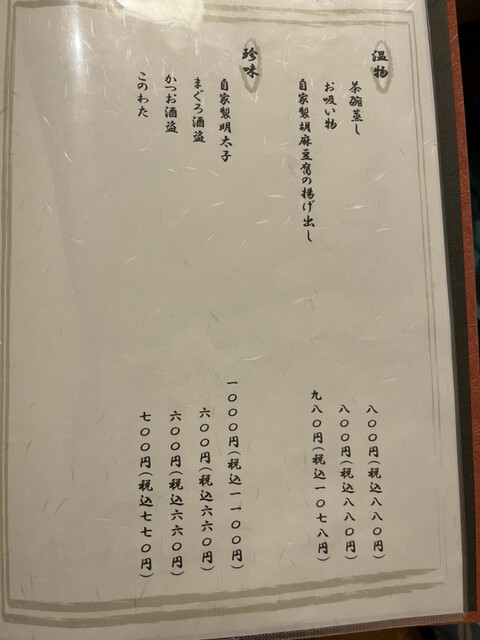 温物
茶碗蒸し 八〇〇円(税込八八〇円)
お吸い物 八〇〇円(税込八八〇円)
自家製胡麻豆腐の揚げ出し 九八〇円(税込一〇七八円)
珍味
自家製明太子 一〇〇〇円(税込一一〇〇円)
まぐろ酒盗 六〇〇円(税込六六〇円)
かつお酒盗 六〇〇円(税込六六〇円)
このわた 七〇〇円(税込七七〇円)